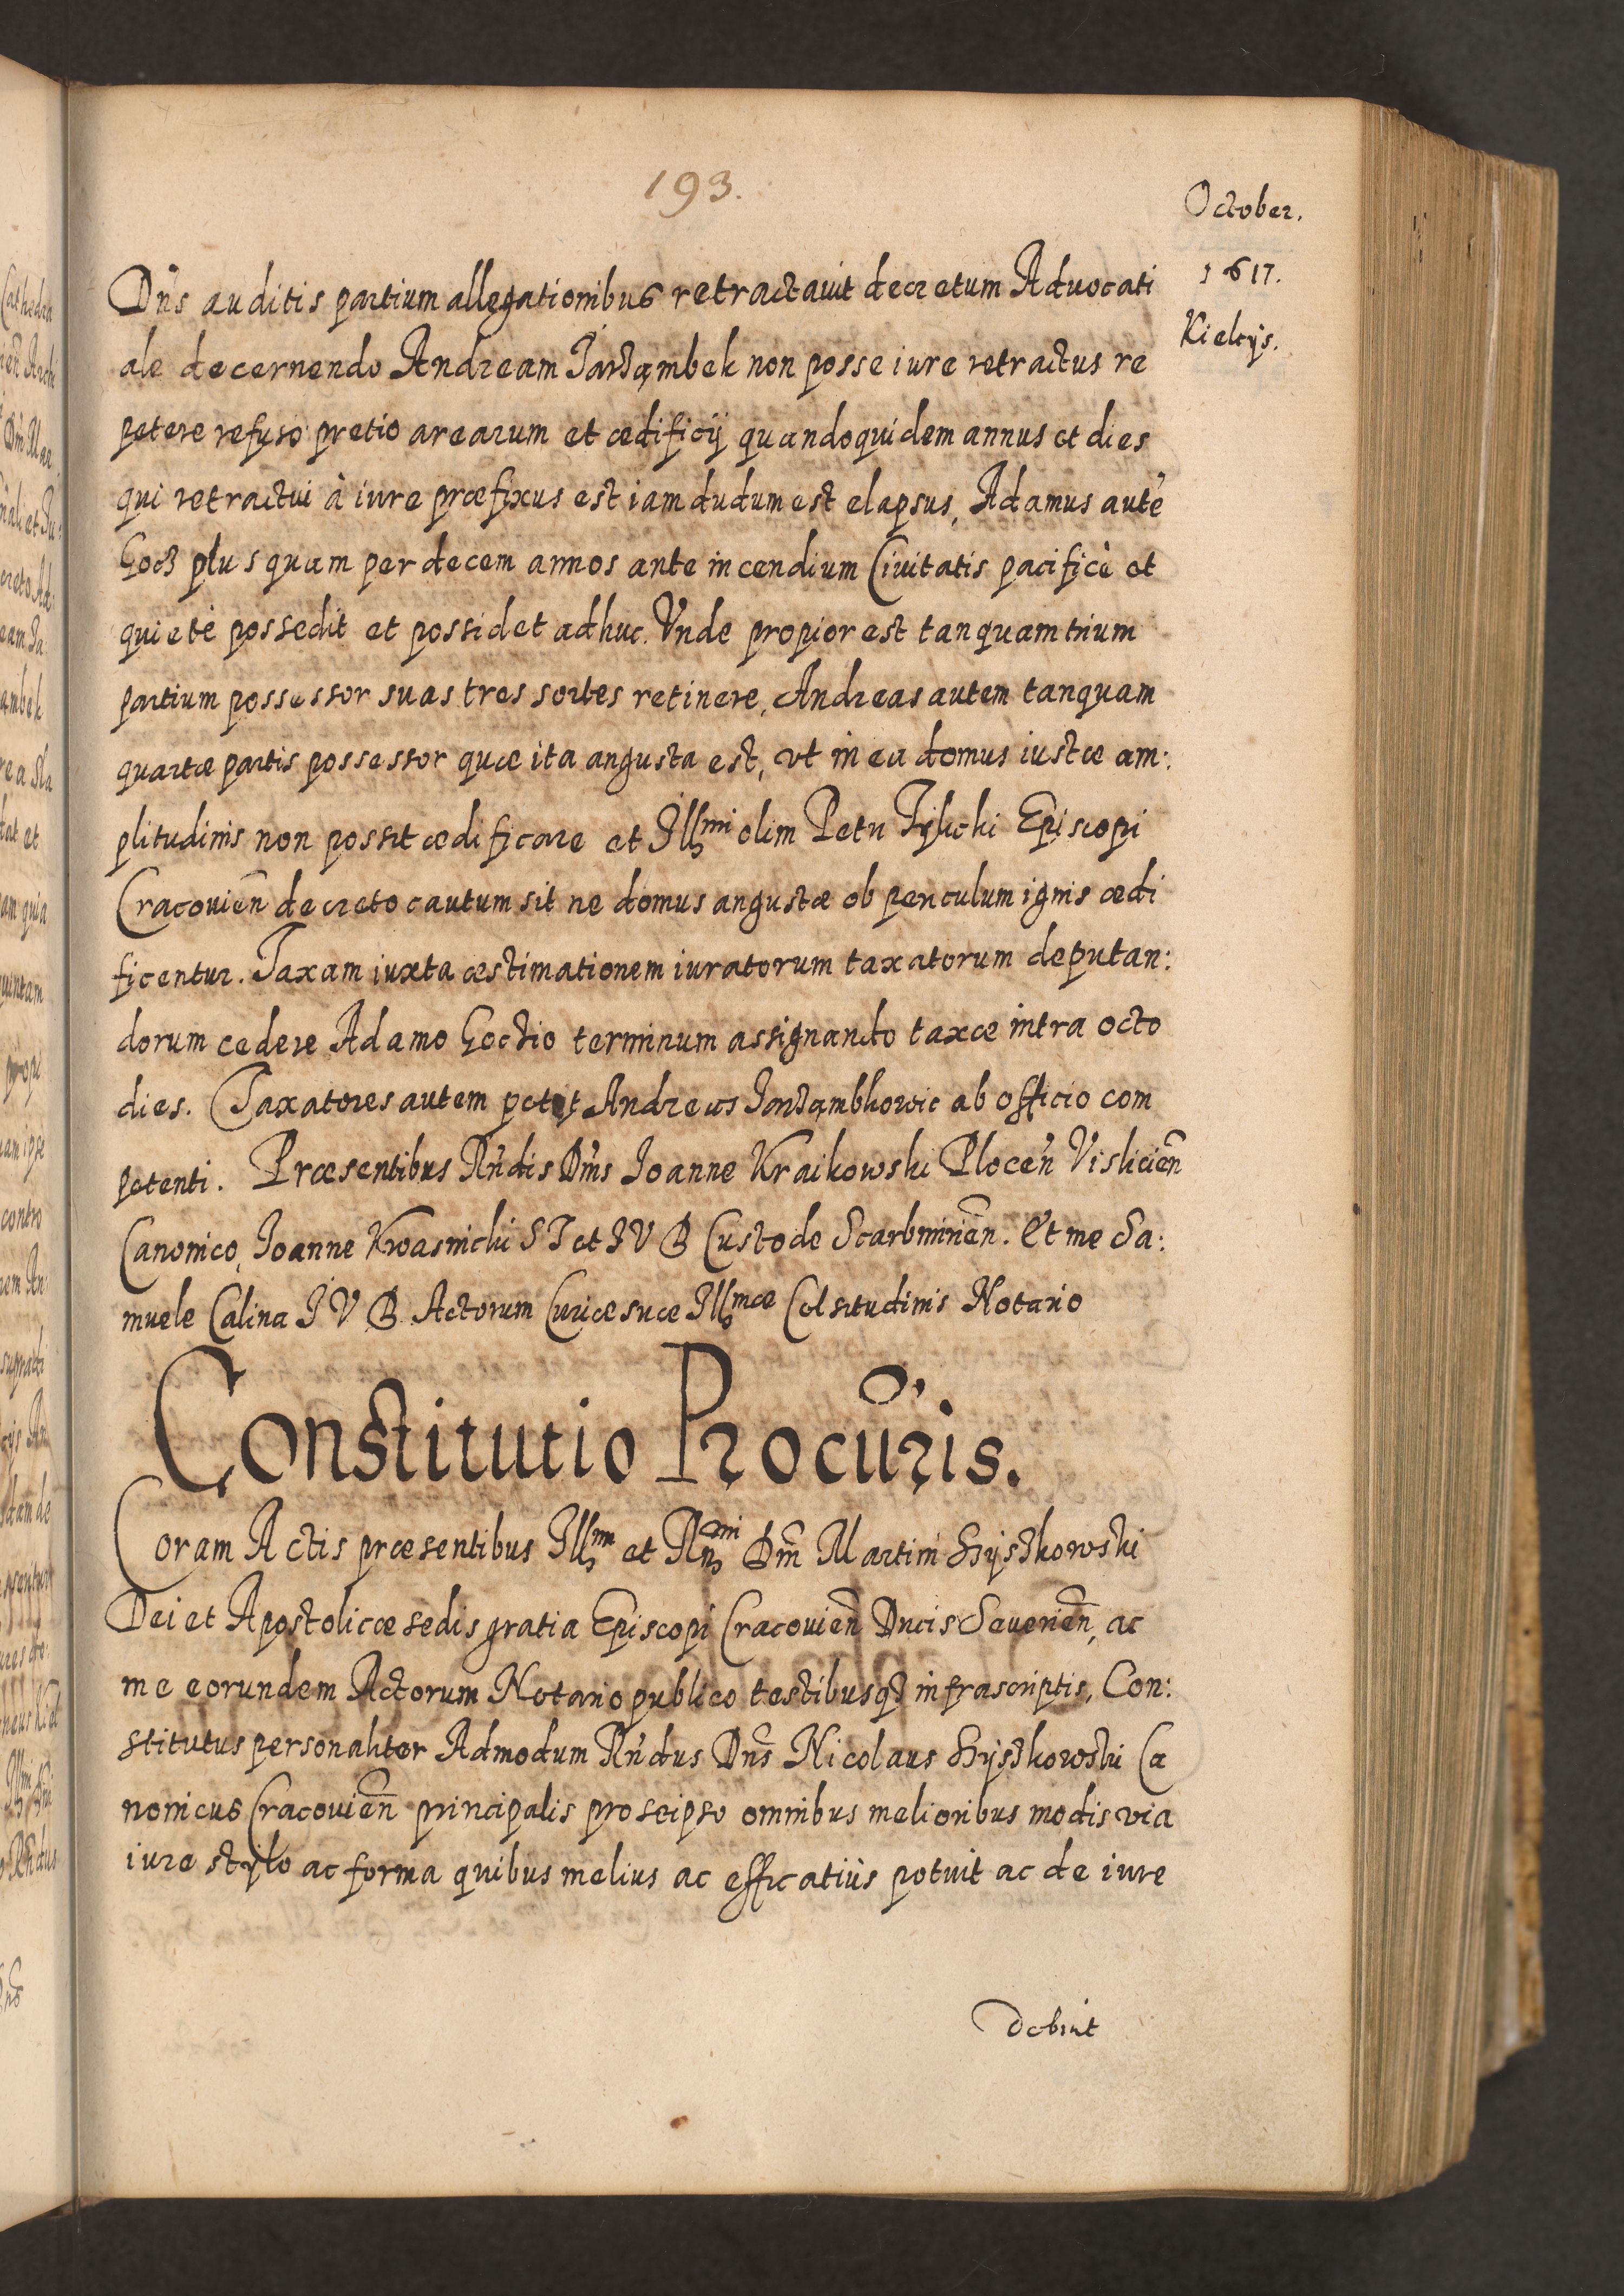 193.
October.
1617.
Kielcijs.
Dn̄s auditis partium allegationibus retractavit decretum Advocati
ale decernendo Andream Jarząmbek non posse iure retractus re
petere refuso pretio arearum et ædificij quandoquidem annus et dies
qui retractui à iure præfixus est iam dudum est elapsus, Adamus autē
Gocz plus quam per decem annos ante incendium Civitatis pacificè et
quietè possedit et possidet adhuc. Vnde propior est tanquam trium
partium possessor suas tres sortes retinere, Andreas autem tanquam
quartæ partis possessor quæ ita angusta est, vt in ea domus iustæ am:
plitudinis non possit ædificare et Illmi olim Petri Tylicki Episcopi
Cracovien̄ decreto cautum sit ne domus angustæ ob periculum ignis ædi
ficentur. Taxam iuxta æstimationem iuratorum taxatorum deputan:
dorum cedere Adamo Goctio terminum assignando taxæ intra octo
dies. Taxatores autem petet Andreas Jarząmbkowic ab officio com
petenti. Præsentibus Rn̄dis Dn̄is Joanne Kraikowski Plocen̄ Vislicien̄
Canonico, Joanne Kwasnicki S T et J V D Custode Scarbmirien̄. Et me Sa:
muele Calina J V D Actorum Curiæ suæ Illmæ Celsitudinis Notario
Constitutio Procūris.
Coram Actis præsentibus Illmi et Rn̄dmi Dn̄i Martini Szyszkowski
Dei et Apostolicæ sedis gratia Episcopi Cracovien̄ Ducis Severien̄, ac
me eorundem Actorum Notario publico testibusq₃ infrascriptis, Con:
stitutus personaliter Admodum Rn̄dus Dn̄s Nicolaus Szyszkowski Ca
nonicus Cracovien̄ principalis pro seipso omnibus melioribus modis via
iure stylo ac forma quibus melius ac efficatiùs potuit ac de iure
debuit